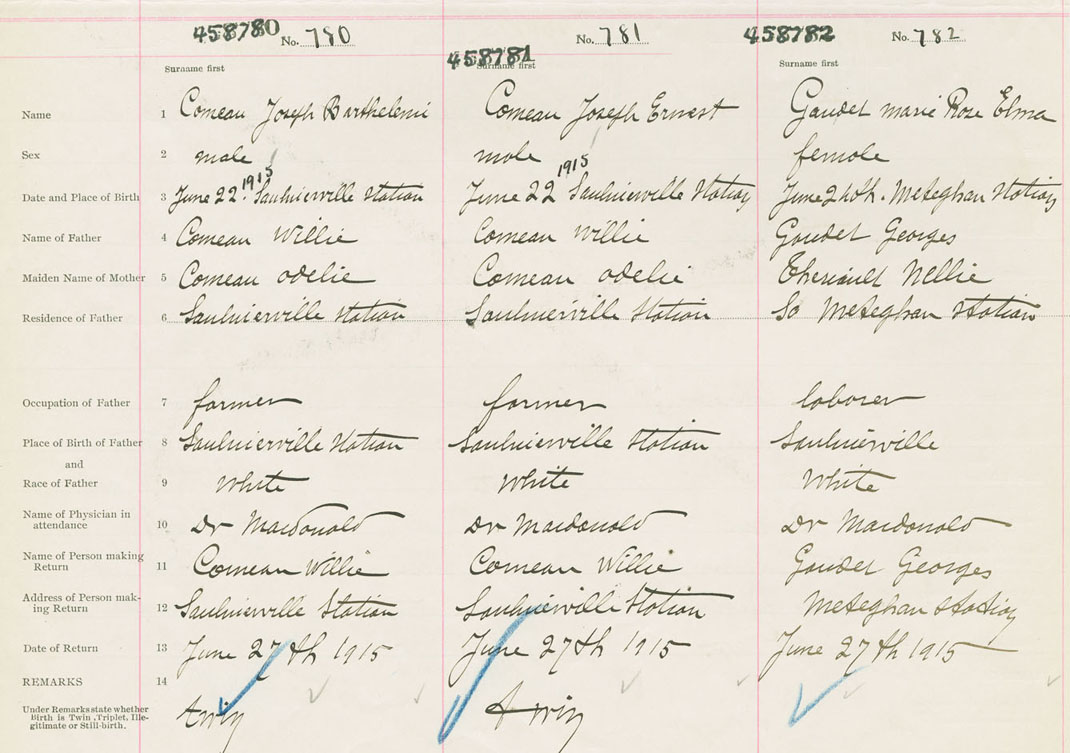 458780 No. 780 458781 No. 781 458782 No. 782
Surname first Surname first Surname first
Name 1 Comeau Joseph Barthelemi Comeau Joseph Ernest Gaudet marie Rose Elma
Sex 2 male male female
Date and Place of Birth 3 June 22. 1915 Saulnierville Station June 22 1915 Saulnierville Station June 24th. Meteghan Station
Name of Father 4 Comeau Willie Comeau Willie Gaudet Georges
Maiden Name of Mother 5 Comeau Odelie Comeau Odelie Theriault Nellie
Residence of Father 6 Saulnierville Station Saulnierville Station So Meteghan Station
Occupation of Father 7 farmer farmer laborer
Place of Birth of Father 8 Saulnierville Station Saulnierville Station Saulnierville
and
Race of Father 9 White White White
Name of Physician in
attendance 10 Dr Macdonald Dr Macdonald Dr Macdonald
Name of Person making
Return 11 Comeau Willie Comeau Willie Gaudet Georges
Address of Person mak-
ing Return 12 Saulnierville Station Saulnierville Station Meteghan Station
Date of Return 13 June 27th 1915 June 27th 1915 June 27th 1915
REMARKS 14
Under Remarks state whether
Birth is Twin, Triplet, Ille-
gitimate or Still-birth. twin twin